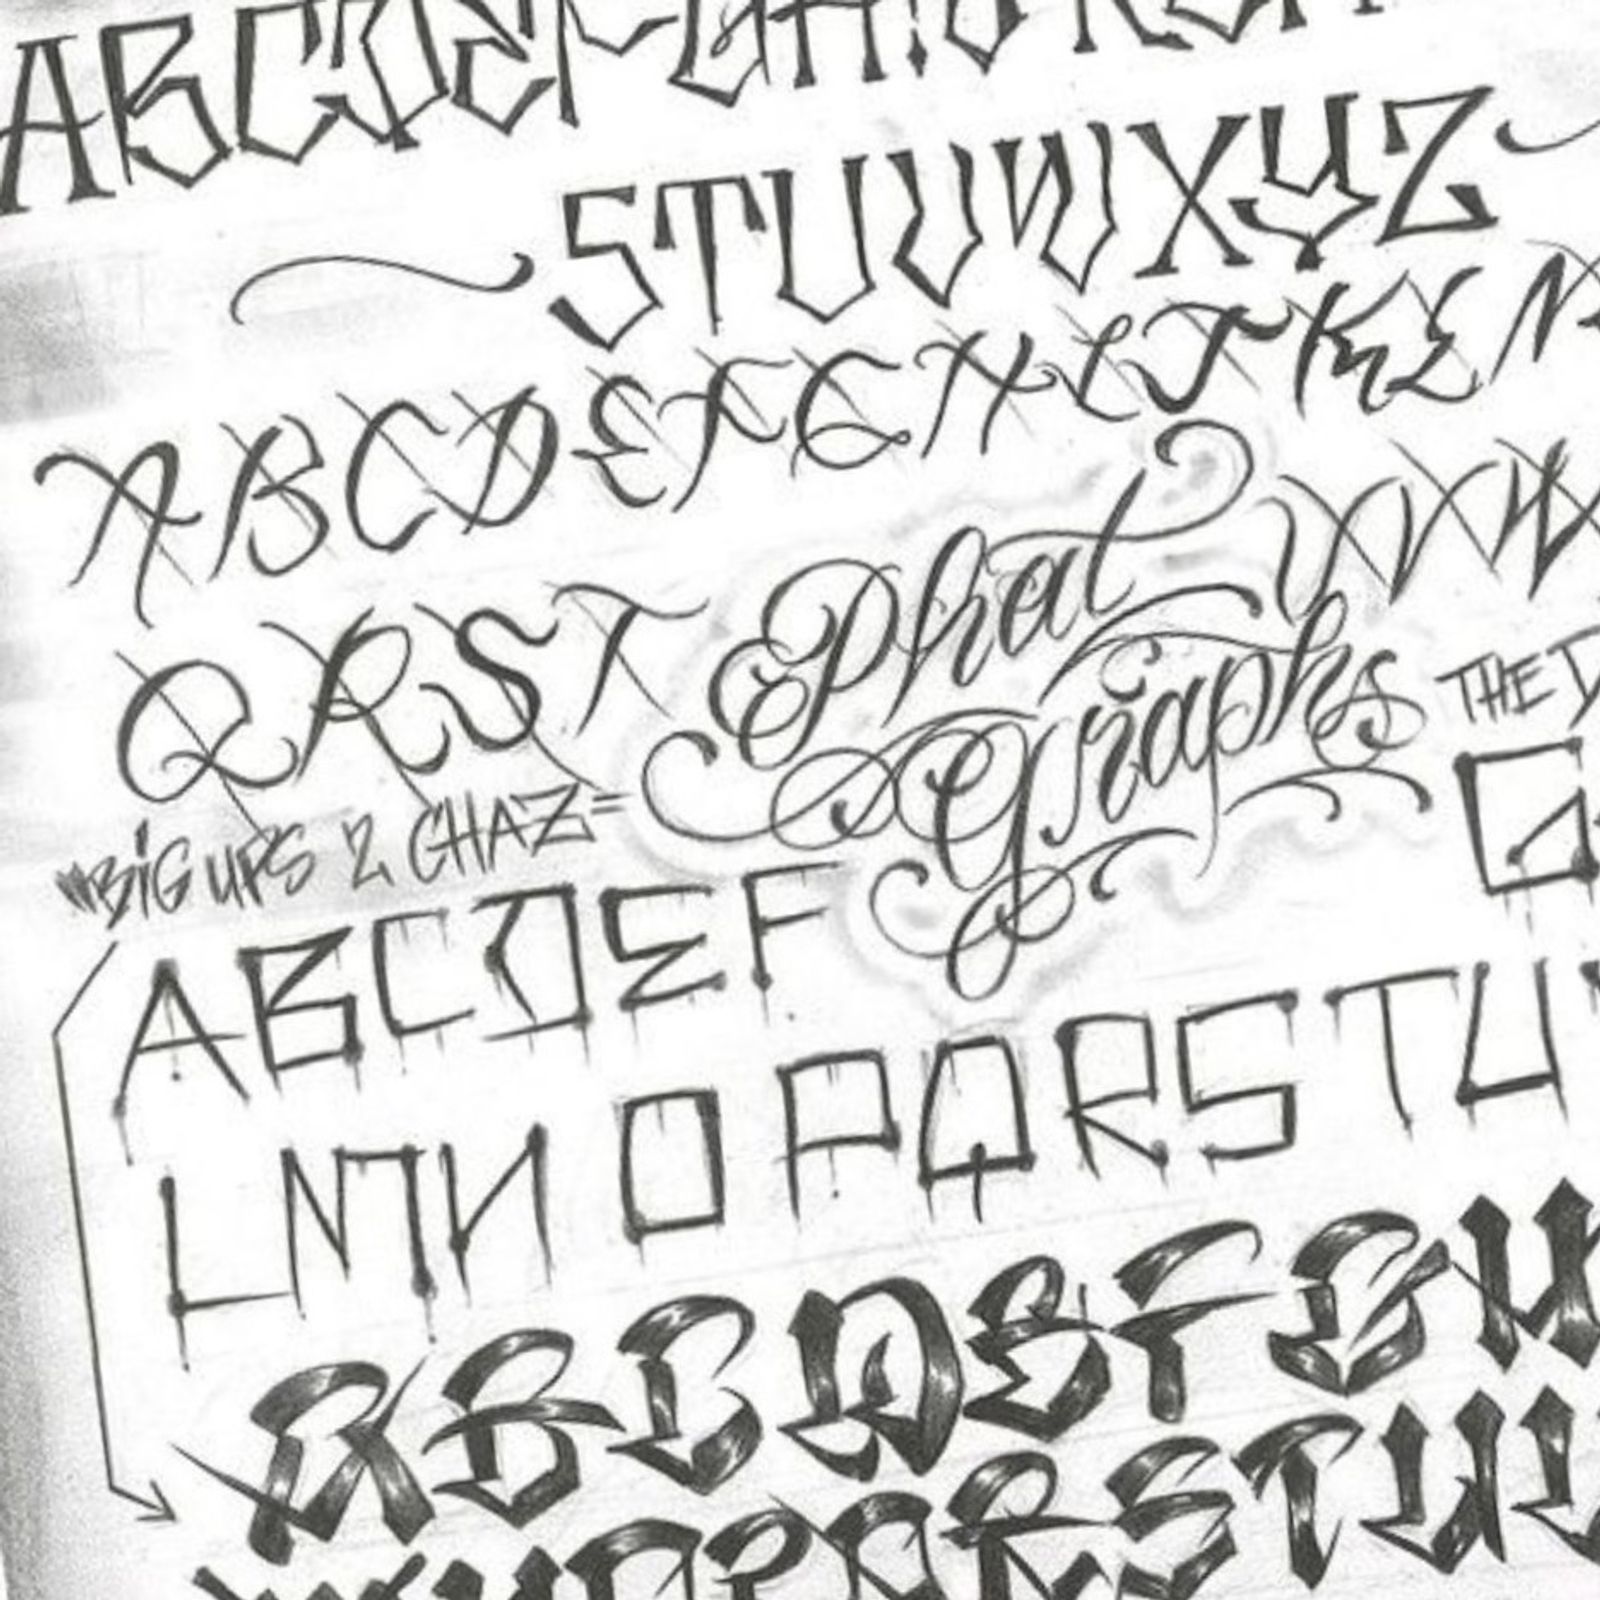 ABCDEFGHIJKLM
STUVWXYZ
ABCDEFGHIJKLM
QRST Phat VWXW
Graphs THE D
"BIG UPS 2 CHAZ"
ABCDEF G
LMN O PQRSTU
ABCDEFGH
MNOPQRSTU